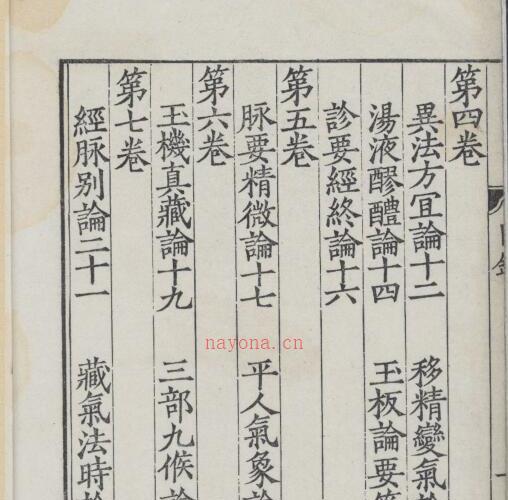 第四卷
異法方宜論十二 移精變氣
湯液醪醴論十四 玉板論要
診要經終論十六
第五卷
脉要精微論十七 平人氣象論
第六卷
玉機真藏論十九 三部九候論
第七卷
經脉别論二十一 藏氣法時
nayona.cn